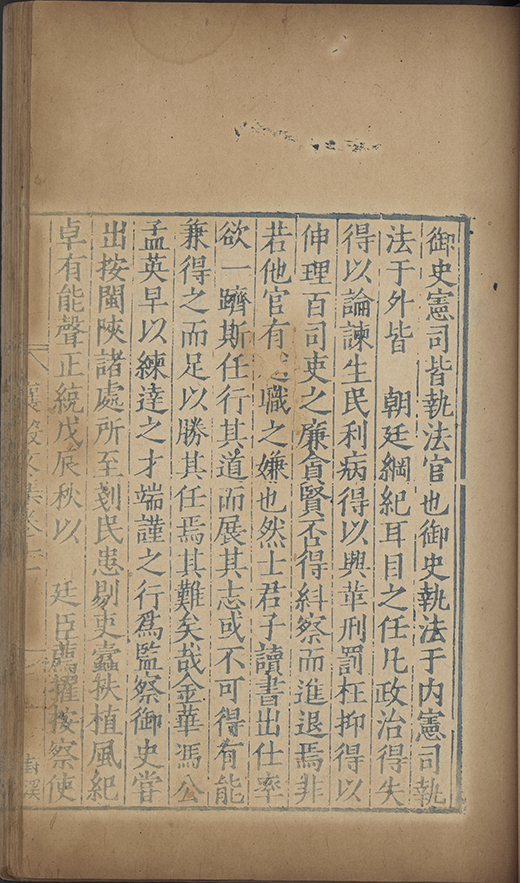 御史憲司皆執法官也御史執法于內憲司執
法于外皆 朝廷綱紀耳目之任凡政治得失
得以論諫生民利病得以興革刑罰枉抑得以
伸理百司吏之廉貪賢否得糾察而進退焉非
若他官有職之嫌也然士君子讀書出仕率
欲一躋斯任行其道而展其志或不可得有能
兼得之而足以勝其任焉其難矣哉金華馮公
孟英早以練達之才端謹之行爲監察御史嘗
出按閩陜諸處所至刬民患剔吏蠹扶植風紀
卓有能聲正統戊辰秋以 廷臣薦擢按察使
文集卷